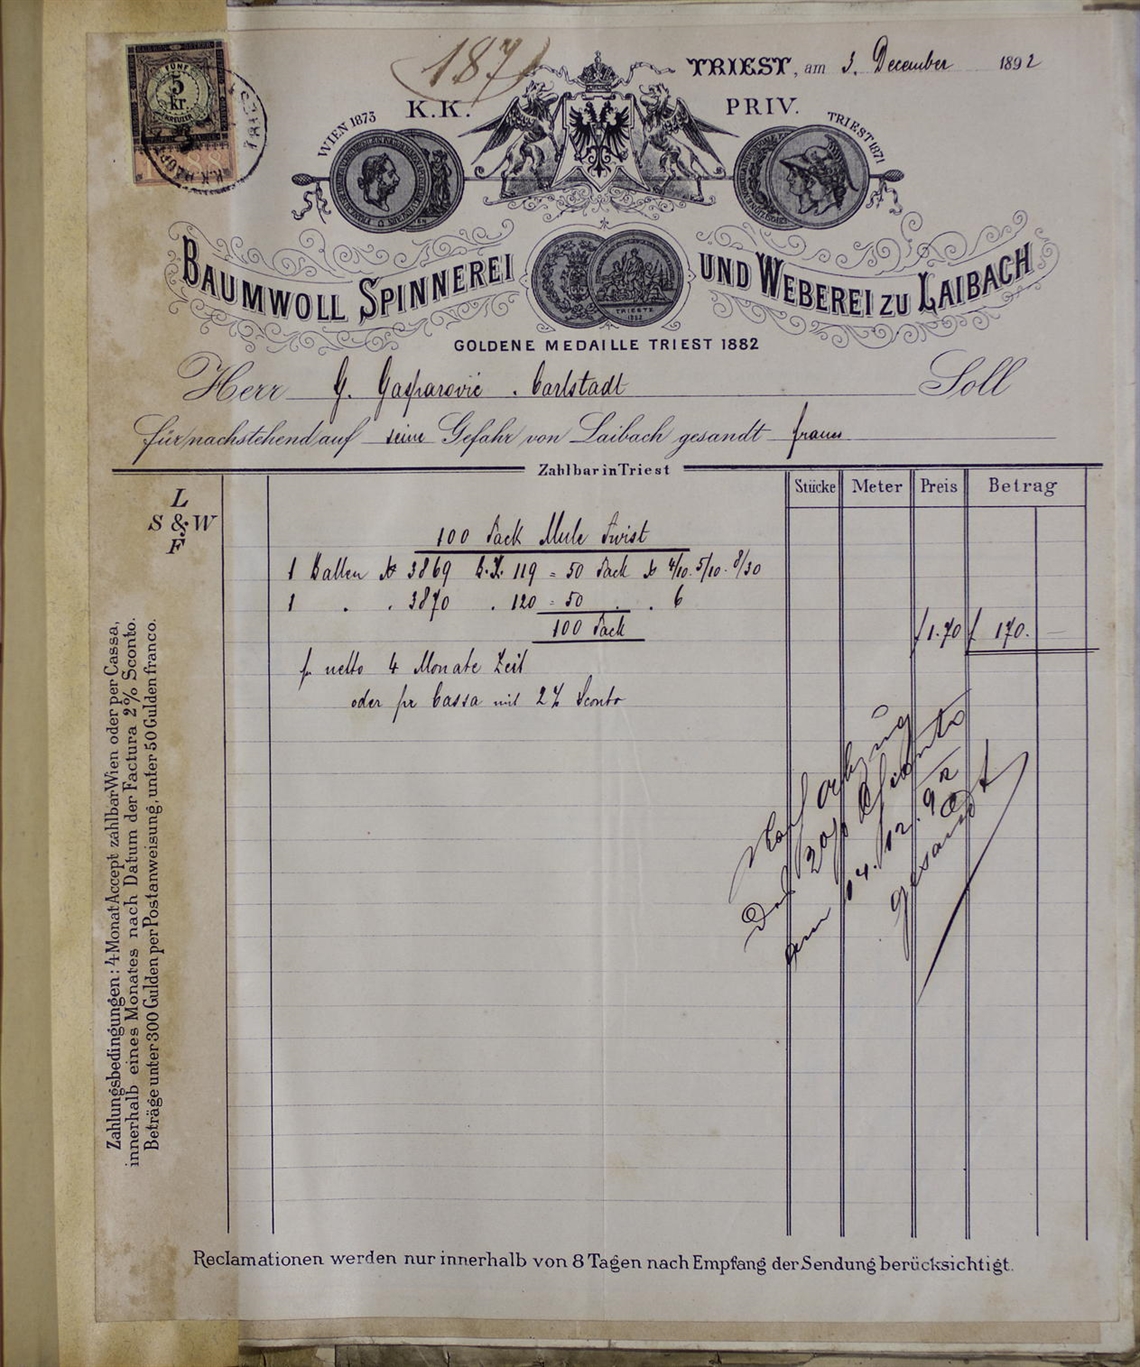 187
FÜNF
5
kr.
KREUZER
TRIEST, am 3. December 1892
K.K. PRIV.
WIEN 1873
TRIEST 1871
BAUMWOLL SPINNEREI UND WEBEREI ZU LAIBACH
TRIESTE
1882
GOLDENE MEDAILLE TRIEST 1882
Herr G. Gasparović . Carlstadt Soll
für nachstehend auf seine Gefahr von Laibach gesandt
Zahlbar in Triest
Stücke Meter Preis Betrag
L
S & W
F
100 Pack Mule Twist
1 Ballen № 3869 119 = 50 Pack № 4/10. 5/10. 8/30
1 . . 3870 . 120 = 50 . . 6
100 Pack
f 1.70 f 170. —
pr netto 4 Monate Zeit
oder pr Cassa mit 2% Sconto
am 14./12. 92
gesandt
Zahlungsbedingungen: 4 Monat Accept zahlbar Wien oder per Cassa,
innerhalb eines Monates nach Datum der Factura 2% Sconto.
Beträge unter 300 Gulden per Postanweisung, unter 50 Gulden franco.
Reclamationen werden nur innerhalb von 8 Tagen nach Empfang der Sendung berücksichtigt.